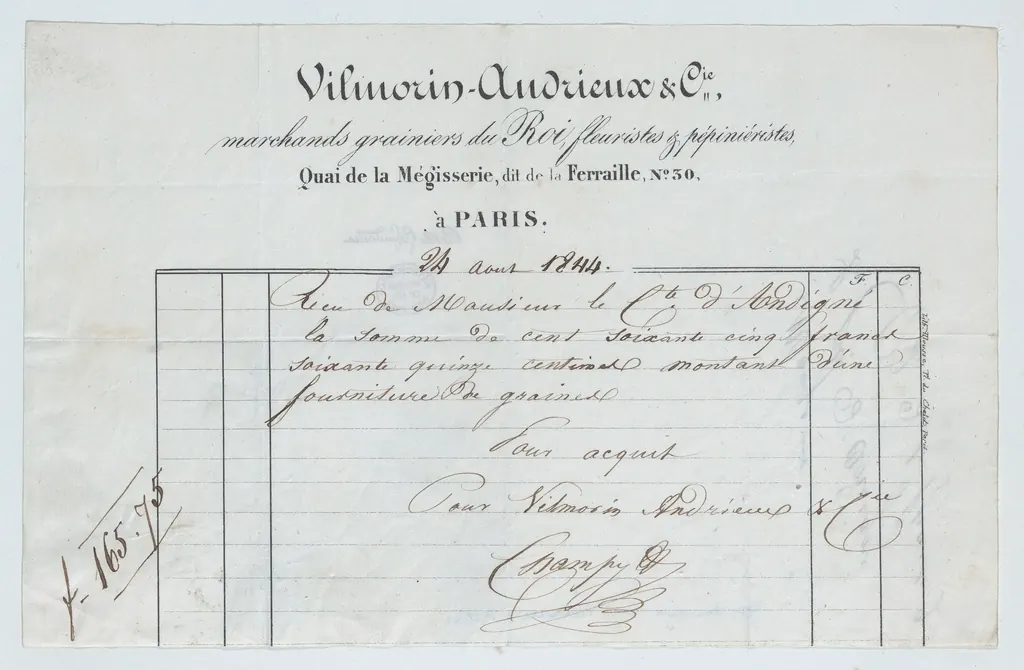 Vilmorin-Andrieux & Cie,
marchands grainiers du Roi, fleuristes & pépiniéristes,
Quai de la Mégisserie, dit de la Ferraille, No. 30,
à PARIS.
24 Aout 1844.
F. C.
Recu de Monsieur le Cte d'Andigné
la somme de cent soixante cinq francs
soixante quinze centimes montant d'une
fourniture de graines
Pour acquit
Pour Vilmorin Andrieux & Cie
Champy
f- 165.75